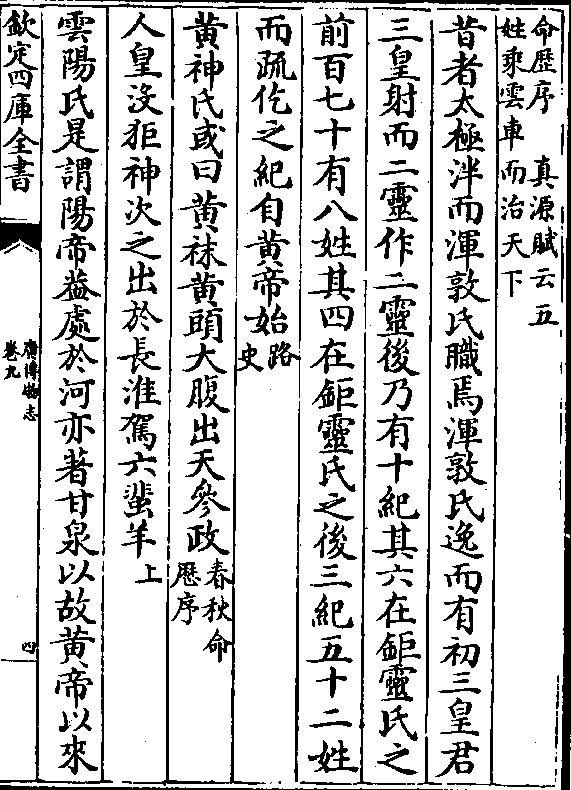 命歴序　真源賦云五
姓乘雲車而治天下
昔者太極泮而渾敦氏職焉渾敦氏逸而有初三皇君
三皇射而二靈作二靈後乃有十紀其六在鉅靈氏之
前百七十有八姓其四在鉅靈氏之後三紀五十二姓
而疏仡之紀自黄帝始路史
黄神氏或曰黄袜黄頭大腹出天參政春秋命歴序
人皇没狟神次之出於長淮駕六蜚羊上
雲陽氏是謂陽帝葢處於河亦著甘泉以故黄帝以來
欽定四庫全書
廣博物志
卷九
四